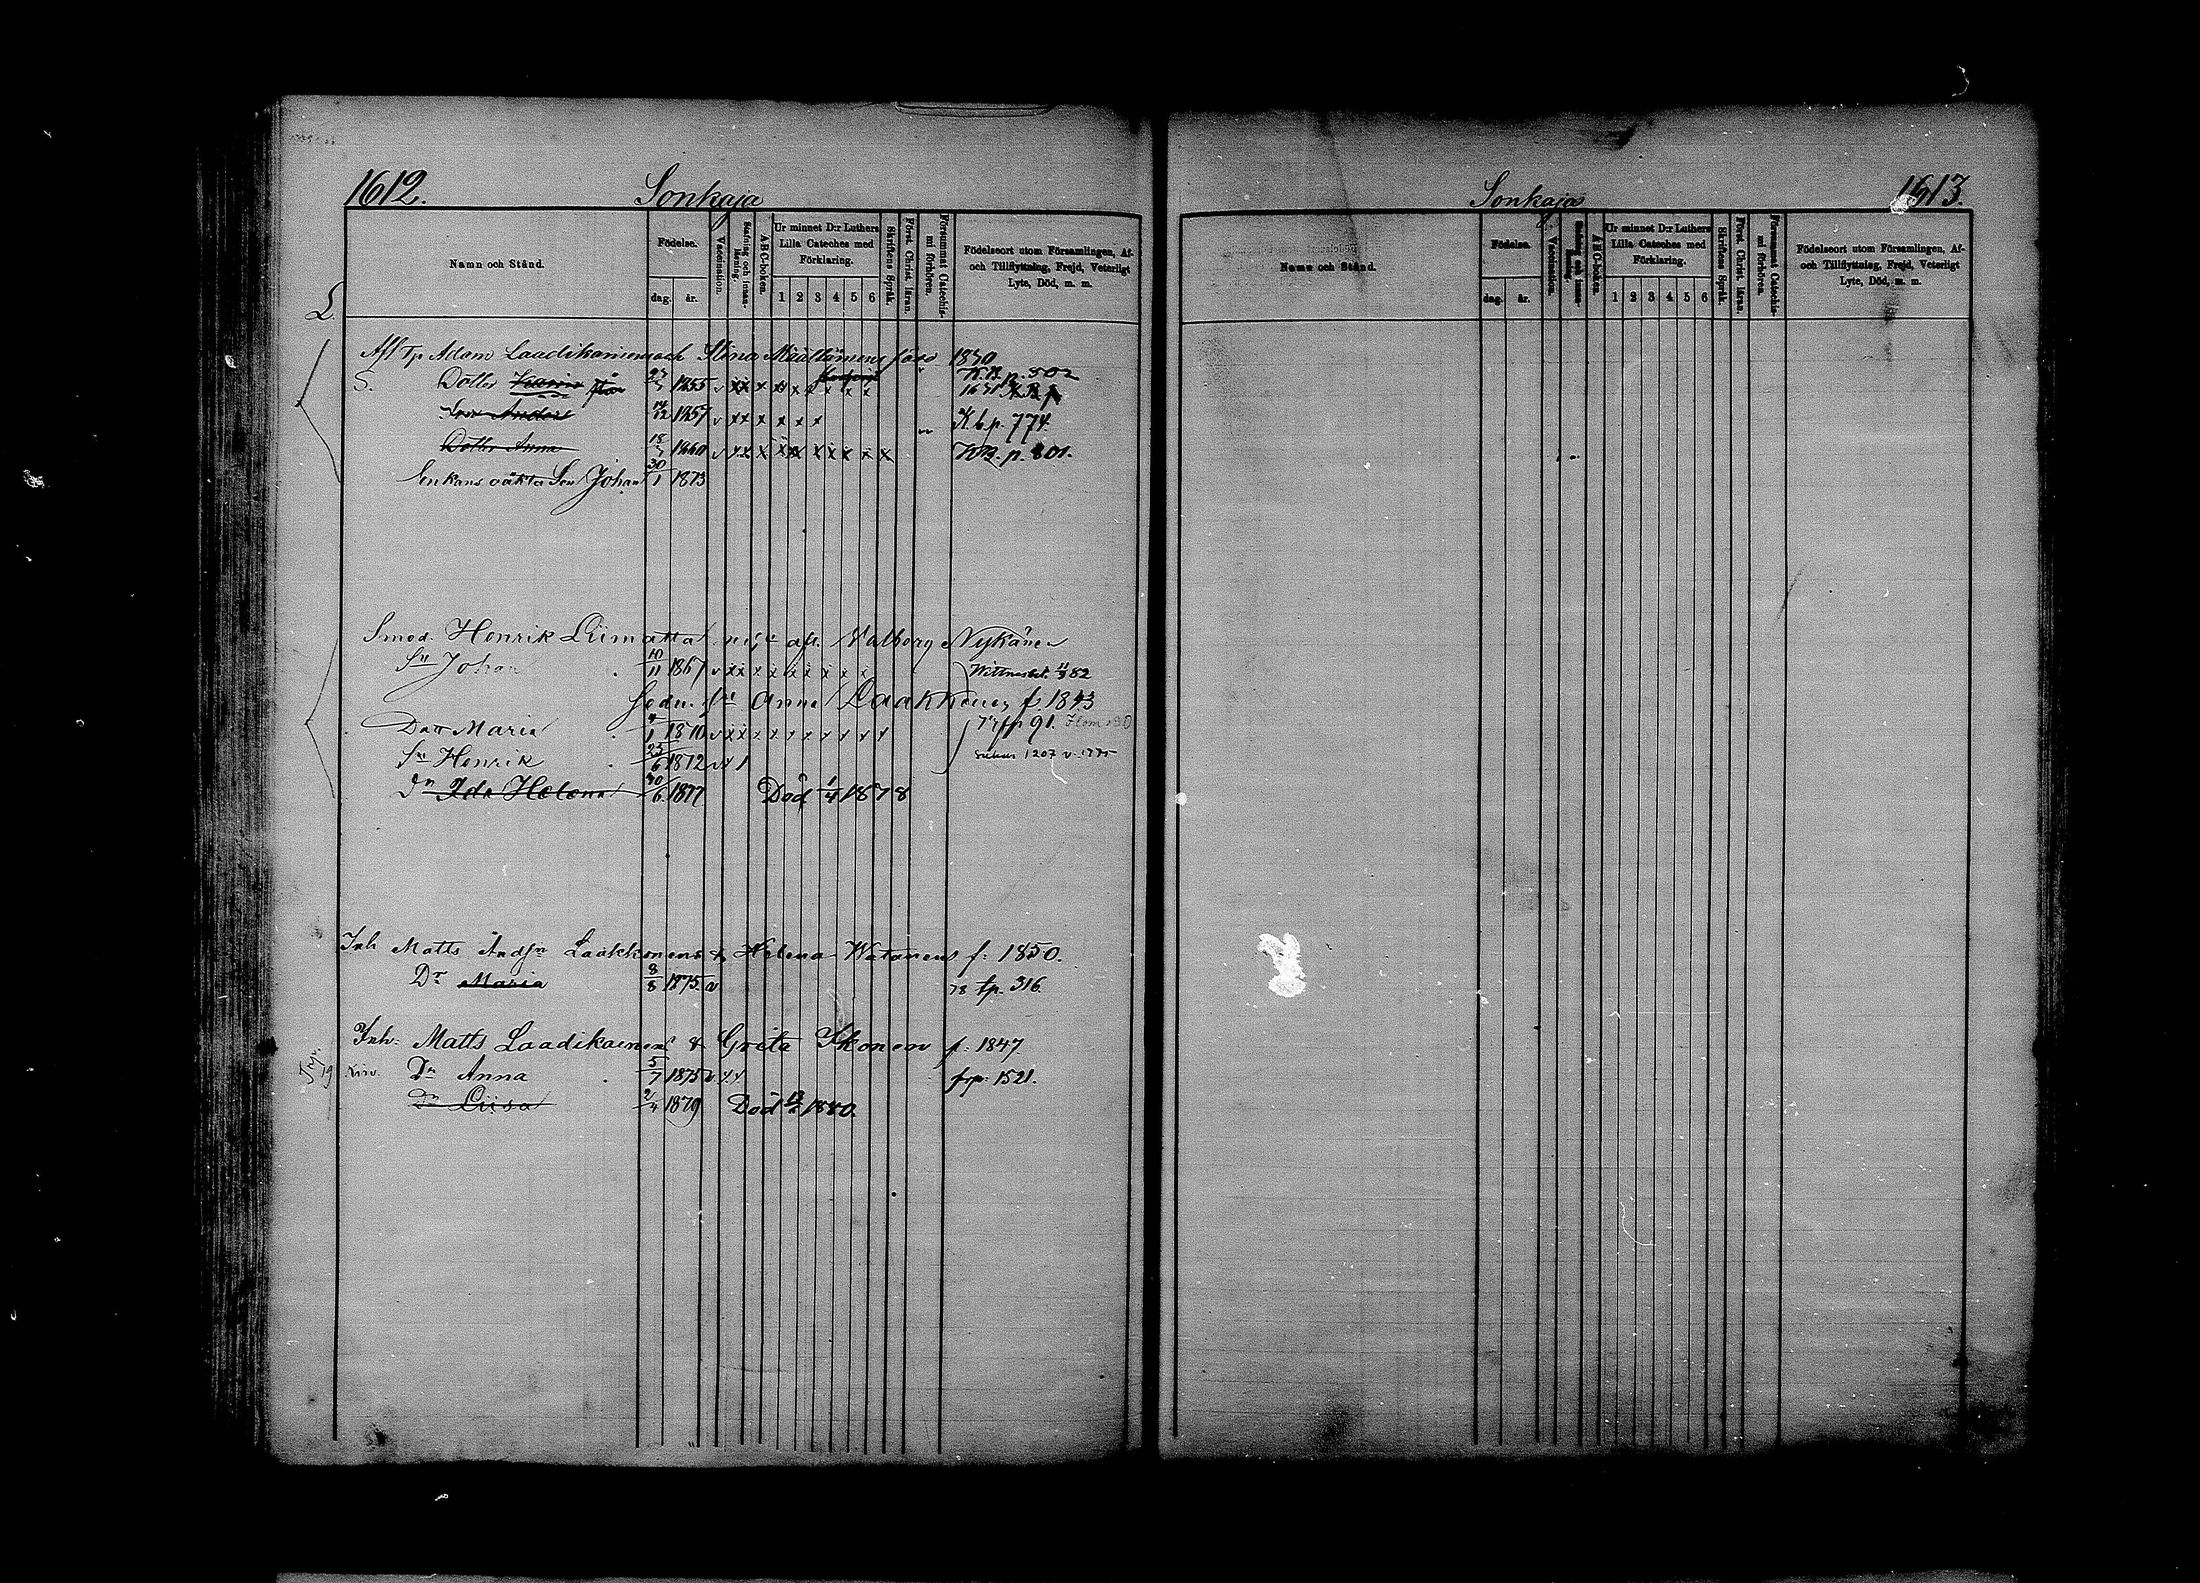 1612. Sonkaja
Namn och Stånd.
Födelse.
dag. år.
Vaccination.
Stafning och innanläsning.
A B C-boken.
Ur minnet D:r Luthers Lilla Cateches med Förklaring.
1 2 3 4 5 6
Skriftens Språk.
Först. Christ. läran.
Försummat Catechismi förhören.
Födelseort utom Församlingen, Af- och Tillflyttning, Frejd, Veterligt Lyte, Död, m. m.
L.
Afl Tp Adam Laadikainens och Stina 1830
S. Dotter 1855 v xx x K.B. p. 502
Son Anders 14/12 1857 v xx x x x x K b p. 774.
Dotter Anna 1860 v xx x K.B. p. 801.
Enkans oäkta Son Johan 30/1 1873
Smed. Henrik Liimatta afl. Valborg Nykänen
Sn Johan 10/11 1867 v xx x x x x x x x Wittnesbet. 82
Anna Laakkonen f. 1843
Dott Maria 1/1 1870 v xx x x x x x x x x 77 fp 91.
Sn Henrik 25/6 1872
Dr Ida Helena 30/6 1877 Död 1/4 1878
Inh Matts Andsn Laakkonens & Helena Watanens f: 1850.
Dr Maria 8/8 1875 v 78 tp. 316.
Inh: Matts Laadikainens & Greta Ikonen f: 1847
Dr Anna 5/7 1875 v x x frp: 1521.
Dr Liisa 2/4 1879 Död 1880.
Sonkaja 1613.
Namn och Stånd.
Födelse.
dag. år.
Vaccination.
Stafning och innanläsning.
A B C-boken.
Ur minnet D:r Luthers Lilla Cateches med Förklaring.
1 2 3 4 5 6
Skriftens Språk.
Först. Christ. läran.
Försummat Catechismi förhören.
Födelseort utom Församlingen, Af- och Tillflyttning, Frejd, Veterligt Lyte, Död, m. m.